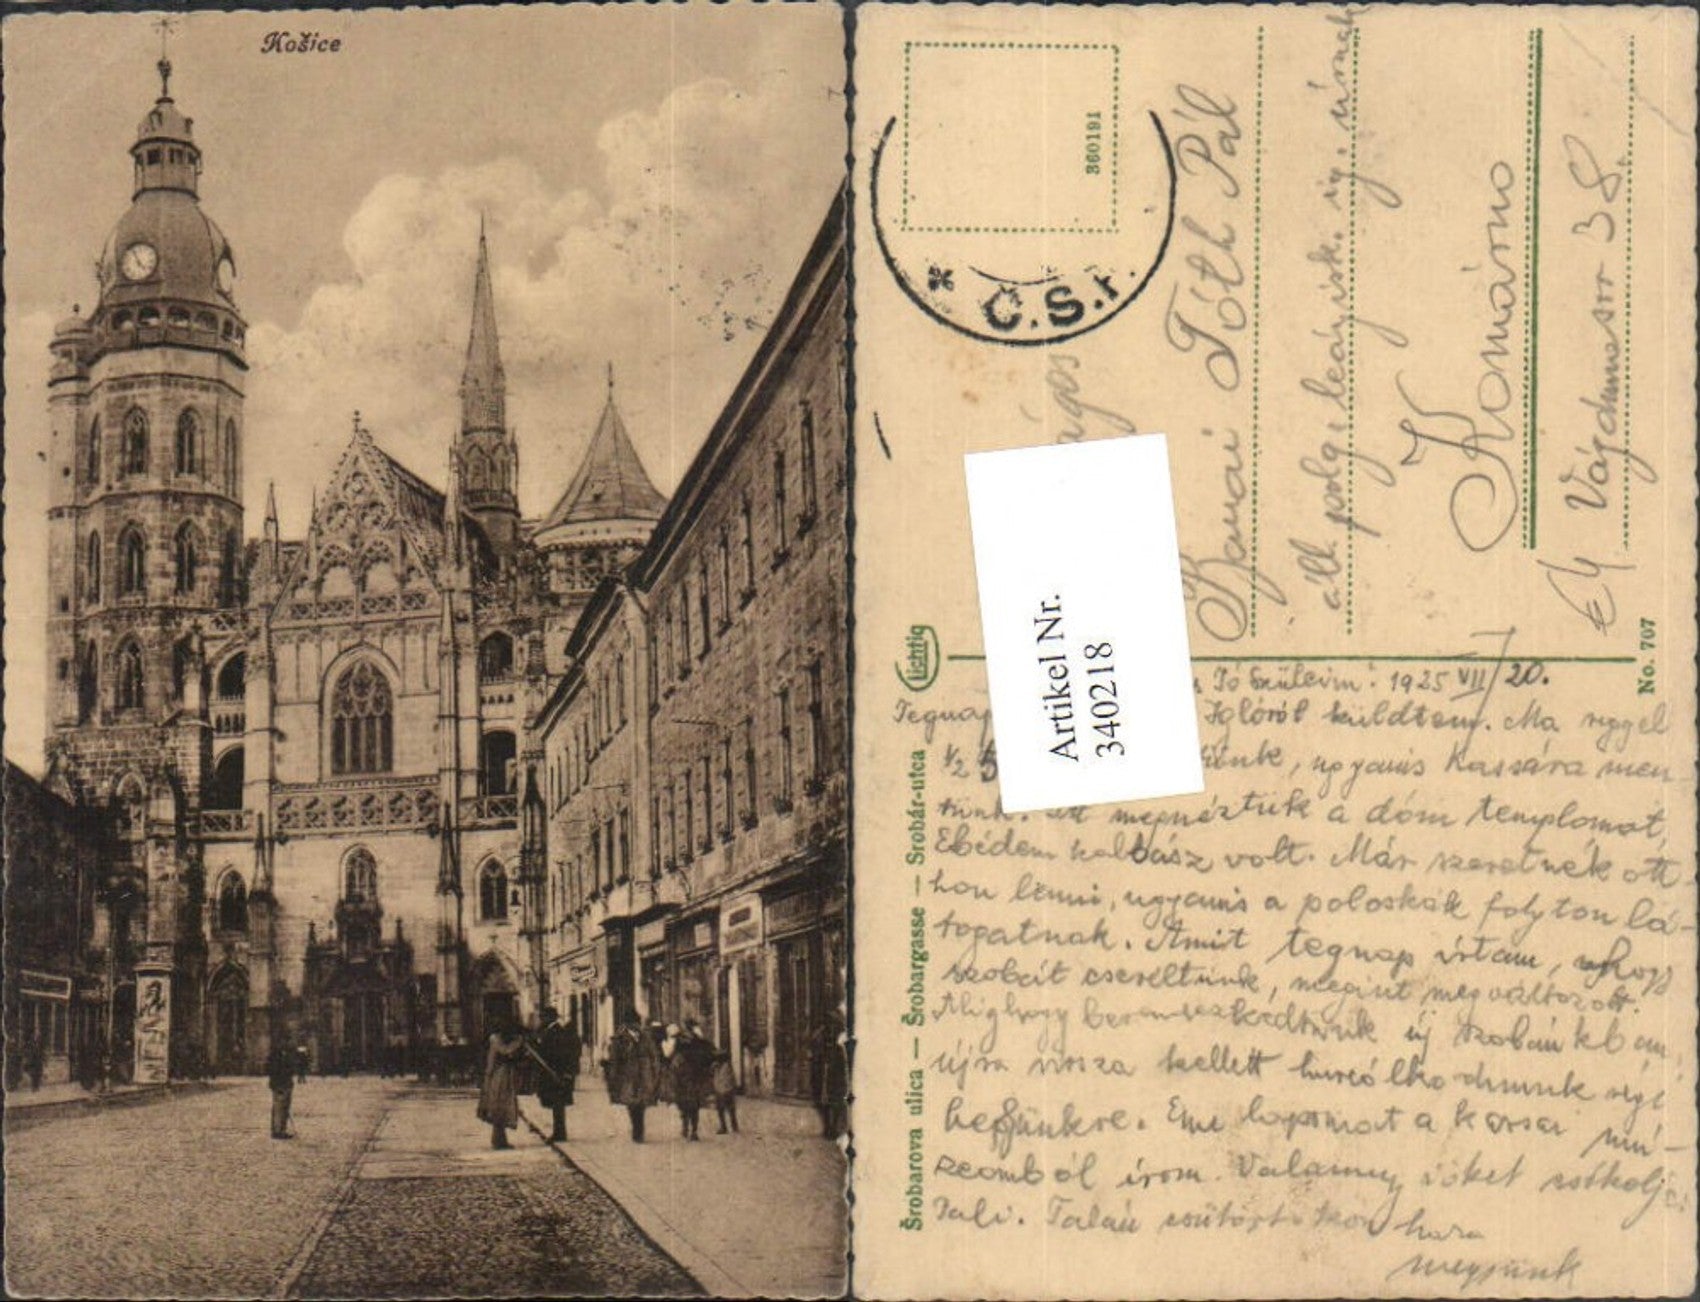 Košice
360191
Č.S.r.
ágos
Bánai Tóth Pál
áll. polg. leányisk. ig. úrnak
Komárno
Vágdunasor 38.
Artikel Nr.
340218
Lichtig
No. 707
Šrobarova ulica — Šrobargasse — Srobár-utca
Jó Szüleim! 1925 VII/20.
Tegnap Iglóról küldtem. Ma reggel
1/2 5 ugyanis Kassára men-
tünk. Itt megnéztük a dóm templomot,
Ebédem kolbász volt. Már szeretnék ott-
hon lenni, ugyanis a poloskák folyton lá-
togatnak. Amit tegnap írtam, hogy
szobát cseréltünk, megint megváltozott.
Alighogy berendezkedtünk új szobánkban,
újra vissza kellett hurcólkodnunk régi
helyünkre. Eme lapomat a kassai mú-
zeomból írom. Valamennyiöket csókolja
Pali. Talán csütörtökön haza
megyünk